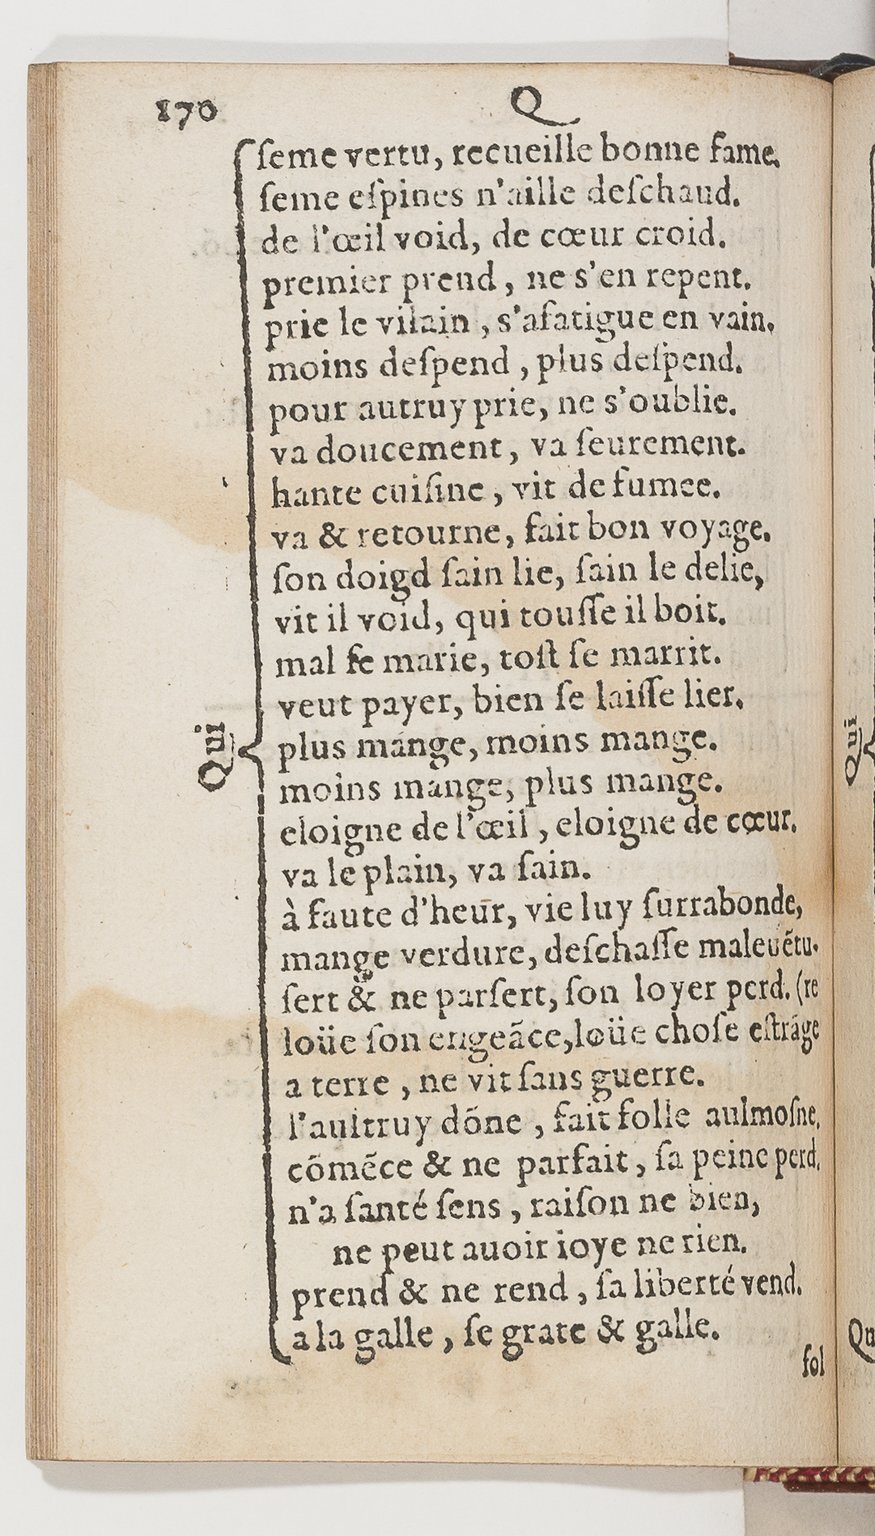 170
Q
Qui
ſeme vertu, recueille bonne fame.
ſeme eſpines n'aille deſchaud.
de l'œil void, de cœur croid.
premier prend, ne s'en repent.
prie le vilain, s'afatigue en vain.
moins deſpend, plus deſpend.
pour autruy prie, ne s'oublie.
va doucement, va ſeurement.
hante cuiſine, vit de fumee.
va & retourne, fait bon voyage.
ſon doigd ſain lie, ſain le delie,
vit il void, qui touſſe il boit.
mal ſe marie, toſt ſe marrit.
veut payer, bien ſe laiſſe lier.
plus mange, moins mange.
moins mange, plus mange.
eloigne de l'œil, eloigne de cœur.
va le plain, va ſain.
à faute d'heur, vie luy ſurrabonde,
mange verdure, deſchaſſe malevẽtu.
ſert & ne parſert, ſon loyer perd. (re
loüe ſon engeãce, loüe choſe eſtrãge
a terre, ne vit ſans guerre.
l'aultruy dõne, fait folle aulmoſne,
cõmẽce & ne parfait, ſa peine perd.
n'a ſanté ſens, raiſon ne bien,
ne peut auoir ioye ne rien.
prend & ne rend, ſa liberté vend.
a la galle, ſe grate & galle.
ſol
Qui
Qu